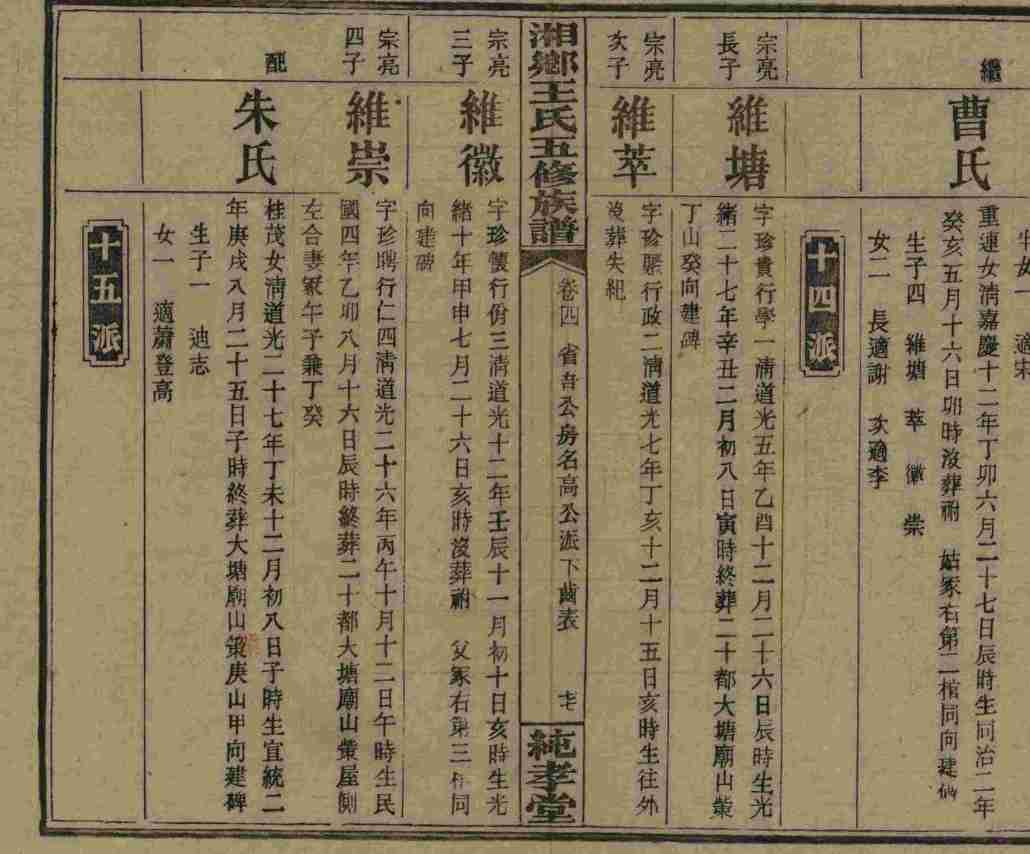 繼
曹氏
重連女淸嘉慶十二年丁卯六月二十七日辰時生同治二年
癸亥五月十六日卯時沒葬祔 姑冢右第二棺同向建碑
生子四 維塘 萃 徽 崇
女二 長適謝 次適李
十四派
宗亮
長子
維塘
字珍貴行學一淸道光五年乙酉十二月二十六日辰時生光
緖二十七年辛丑二月初八日寅時終葬二十都大塘廟山䇿
丁山癸向建碑
宗亮
次子
維萃
字珍 行政二淸道光七年丁亥十二月十五日亥時生往外
沒葬失紀
湘鄉王氏五修族譜
卷四 省吾公房名高公派下齒表
純孝堂
宗亮
三子
維徽
字珍 行 三淸道光十二年壬辰十一月初十日亥時生光
緖十年甲申七月二十六日亥時沒葬祔 父冢右第三 同
向建碑
宗亮
四子
維崇
字珍聘行仁四淸道光二十六年丙午十月十二日午時生民
國四年乙卯八月十六日辰時終葬二十都大塘廟山䇿屋側
左合妻冢午子兼丁癸
配
朱氏
桂茂女淸道光二十七年丁未十二月初八日子時生宣統二
年庚戌八月二十五日子時終葬大塘廟山䇿庚山甲向建碑
生子一 迪志
女一 適蕭登高
十五派